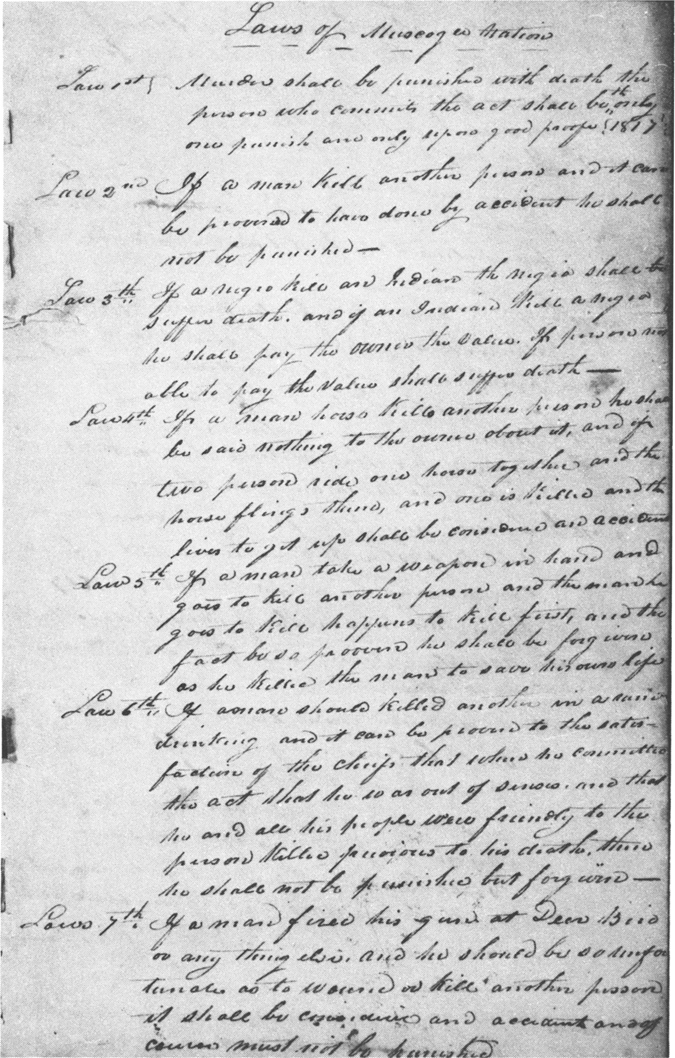 Laws of Muscogee Nation
Law 1st { Murder shall be punished with death the
person who commits the act shall be the only
one punish and only upon good proofe {1817
Law 2nd If a man Kill another person and it can
be proverd to have done by accident he shall
not be punished—
Law 3th If a negro Kill an Indian the negro shall be
suffer death. and if an Indian Kill a negro
he shall pay the owner the value. If person not
able to pay the value shall suffer death—
Law 4th If a man horse Kills another person he shall
be said nothing to the owner about it, and if
two person ride one horse together and the
horse flings them, and one is Killed and the
lives to get up shall be considered an accident
Law 5th If a man take a weapon in hand and
goes to Kill another person and the man he
goes to Kill happens to Kill first, and the
fact be so proverd he shall be forgiven
as he Killed the man to save his own life
Law 6th If a man should Killed another in a
drinking and it can be proved to the satis-
faction of the chiefs that when he committed
the act that he was out of senses. and that
he and all his people were friendly to the
person Killed previous to his death, then
he shall not be punished but forgiven—
Laws. 7th If a man fired his gun at Deer Bird
or any thing else. and he should be so unfor
tunate as to wound or Kill another person
it shall be considered and accident and of
course must not be punished